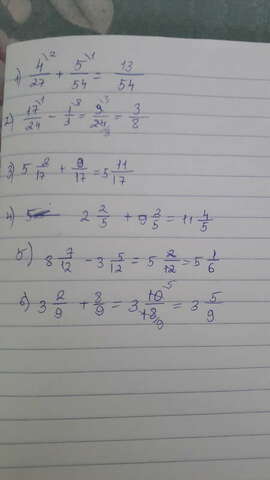 1) 4\2/27 + 5\1/54 = 13/54
2) 17\1/24 - 1\8/3 = 9\3/24 8 = 3/8
3) 5 2/17 + 9/17 = 5 11/17
4) 2 2/5 + 9 2/5 = 11 4/5
5) 8 7/12 - 3 5/12 = 5 2/12 = 5 1/6
6) 3 2/9 + 8/9 = 3 10\5/18 9 = 3 5/9